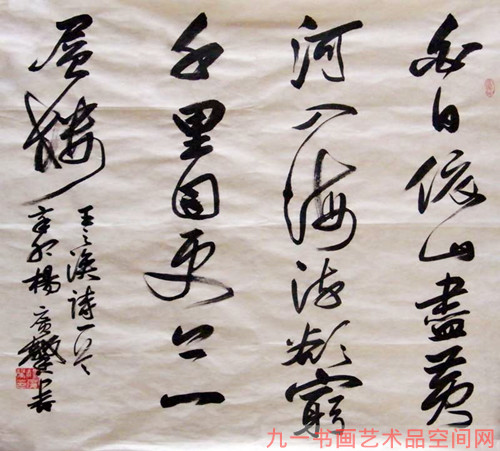 白日依山盡黄
河入海流欲窮
千里目更上一
層楼
王之渙詩一首
辛卯楊廣馨书
九一书画艺术品空间网